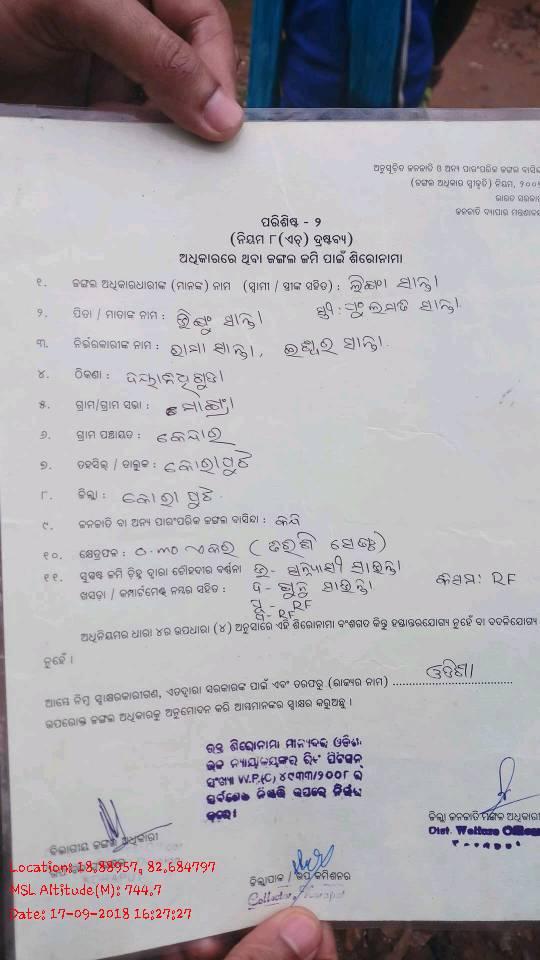 ଅନୁସୂଚିତ ଜନଜାତି ଓ ଅନ୍ୟ ପାରଂପରିକ ଜଙ୍ଗଲ ବାସିନ୍ଦା
(ଜଙ୍ଗଲ ଅଧିକାର ସ୍ବୀକୃତି) ନିୟମ, ୨୦୦୮
ଭାରତ ସରକାର
ଜନଜାତି ବ୍ୟାପାର ମନ୍ତ୍ରଣାଳୟ
ପରିଶିଷ୍ଟ - ୨
(ନିୟମ ୮(ଏଚ୍) ଦ୍ରଷ୍ଟବ୍ୟ)
ଅଧିକାରରେ ଥିବା ଜଙ୍ଗଲ ଜମି ପାଇଁ ଶିରୋନାମା
୧. ଜଙ୍ଗଲ ଅଧିକାରଧାରୀଙ୍କ (ମାନଙ୍କ) ନାମ (ସ୍ବାମୀ / ସ୍ତ୍ରୀଙ୍କ ସହିତ) : ସାନ୍ତା
୨. ପିତା / ମାତାଙ୍କ ନାମ : ସାନ୍ତା ସ୍ତ୍ରୀ : ସାନ୍ତା
୩. ନିର୍ଭରକାରୀଙ୍କ ନାମ : ରାମା ସାନ୍ତା, ଈଶ୍ବର ସାନ୍ତା
୪. ଠିକଣା : ଦୟାନିଧିଗୁଡା
୫. ଗ୍ରାମ/ଗ୍ରାମ ସଭା :
୬. ଗ୍ରାମ ପଞ୍ଚାୟତ : କେନ୍ଦାର
୭. ତହସିଲ୍ / ତାଲୁକ : କୋରାପୁଟ
୮. ଜିଲ୍ଲା : କୋରାପୁଟ
୯. ଜନଜାତି ବା ଅନ୍ୟ ପାରଂପରିକ ଜଙ୍ଗଲ ବାସିନ୍ଦା : କନ୍ଧ
୧୦. କ୍ଷେତ୍ରଫଳ : ୦.୩୦ ଏକର
୧୧. ସୁସ୍ପଷ୍ଟ ଜମି ଚିହ୍ନ ଦ୍ବାରା ଚୌହଦୀର ବର୍ଣ୍ଣନା ଉ- ସନ୍ୟାସୀ ସାଉନ୍ତା
ଖସଡ଼ା / କମ୍ପାର୍ଟମେଣ୍ଟ ନମ୍ବର ସହିତ : ଦ- ସାଉନ୍ତା କିସମ: RF
ପୂ - RF
ପ- RF
ଅଧିନିୟମର ଧାରା ୪ର ଉପଧାରା (୪) ଅନୁସାରେ ଏହି ଶିରୋନାମା ବଂଶଗତ କିନ୍ତୁ ହସ୍ତାନ୍ତରଯୋଗ୍ୟ ନୁହେଁ ବା ବଦଳିଯୋଗ୍ୟ
ନୁହେଁ ।
ଆମ୍ଭେ ନିମ୍ନ ସ୍ବାକ୍ଷରକାରୀଗଣ, ଏତଦ୍ବାରା ସରକାରଙ୍କ ପାଇଁ ଏବଂ ତରଫରୁ (ରାଜ୍ୟର ନାମ) ଓଡିଶା
ଉପରୋକ୍ତ ଜଙ୍ଗଲ ଅଧିକାରକୁ ଅନୁମୋଦନ କରି ଆମ୍ଭମାନଙ୍କର ସ୍ବାକ୍ଷର କରୁଅଛୁ ।
ଉକ୍ତ ଶିରୋନାମା ମାନ୍ୟବର ଓଡିଶା
ଉଚ୍ଚ ନ୍ୟାୟାଳୟଙ୍କର ରିଟ ପିଟିସନ୍
ସଂଖ୍ୟା W.P.(C) ୪୯୩୩/୨୦୦୮ ର
ସର୍ବଶେଷ ନିଷ୍ପତ୍ତି ଉପରେ ନିର୍ଭର
କରେ।
ବିଭାଗୀୟ ଜଙ୍ଗଲ ଅଧିକାରୀ
ଜିଲ୍ଲା ଜନଜାତି ମଙ୍ଗଳ ଅଧିକାରୀ
Dist. Welfare Officer
ଜିଲ୍ଲାପାଳ / ଉପ କମିଶନର
Collector Koraput
Location: 18.88957, 82.684797
MSL Altitude(M): 744.7
Date: 17-09-2018 16:27:27